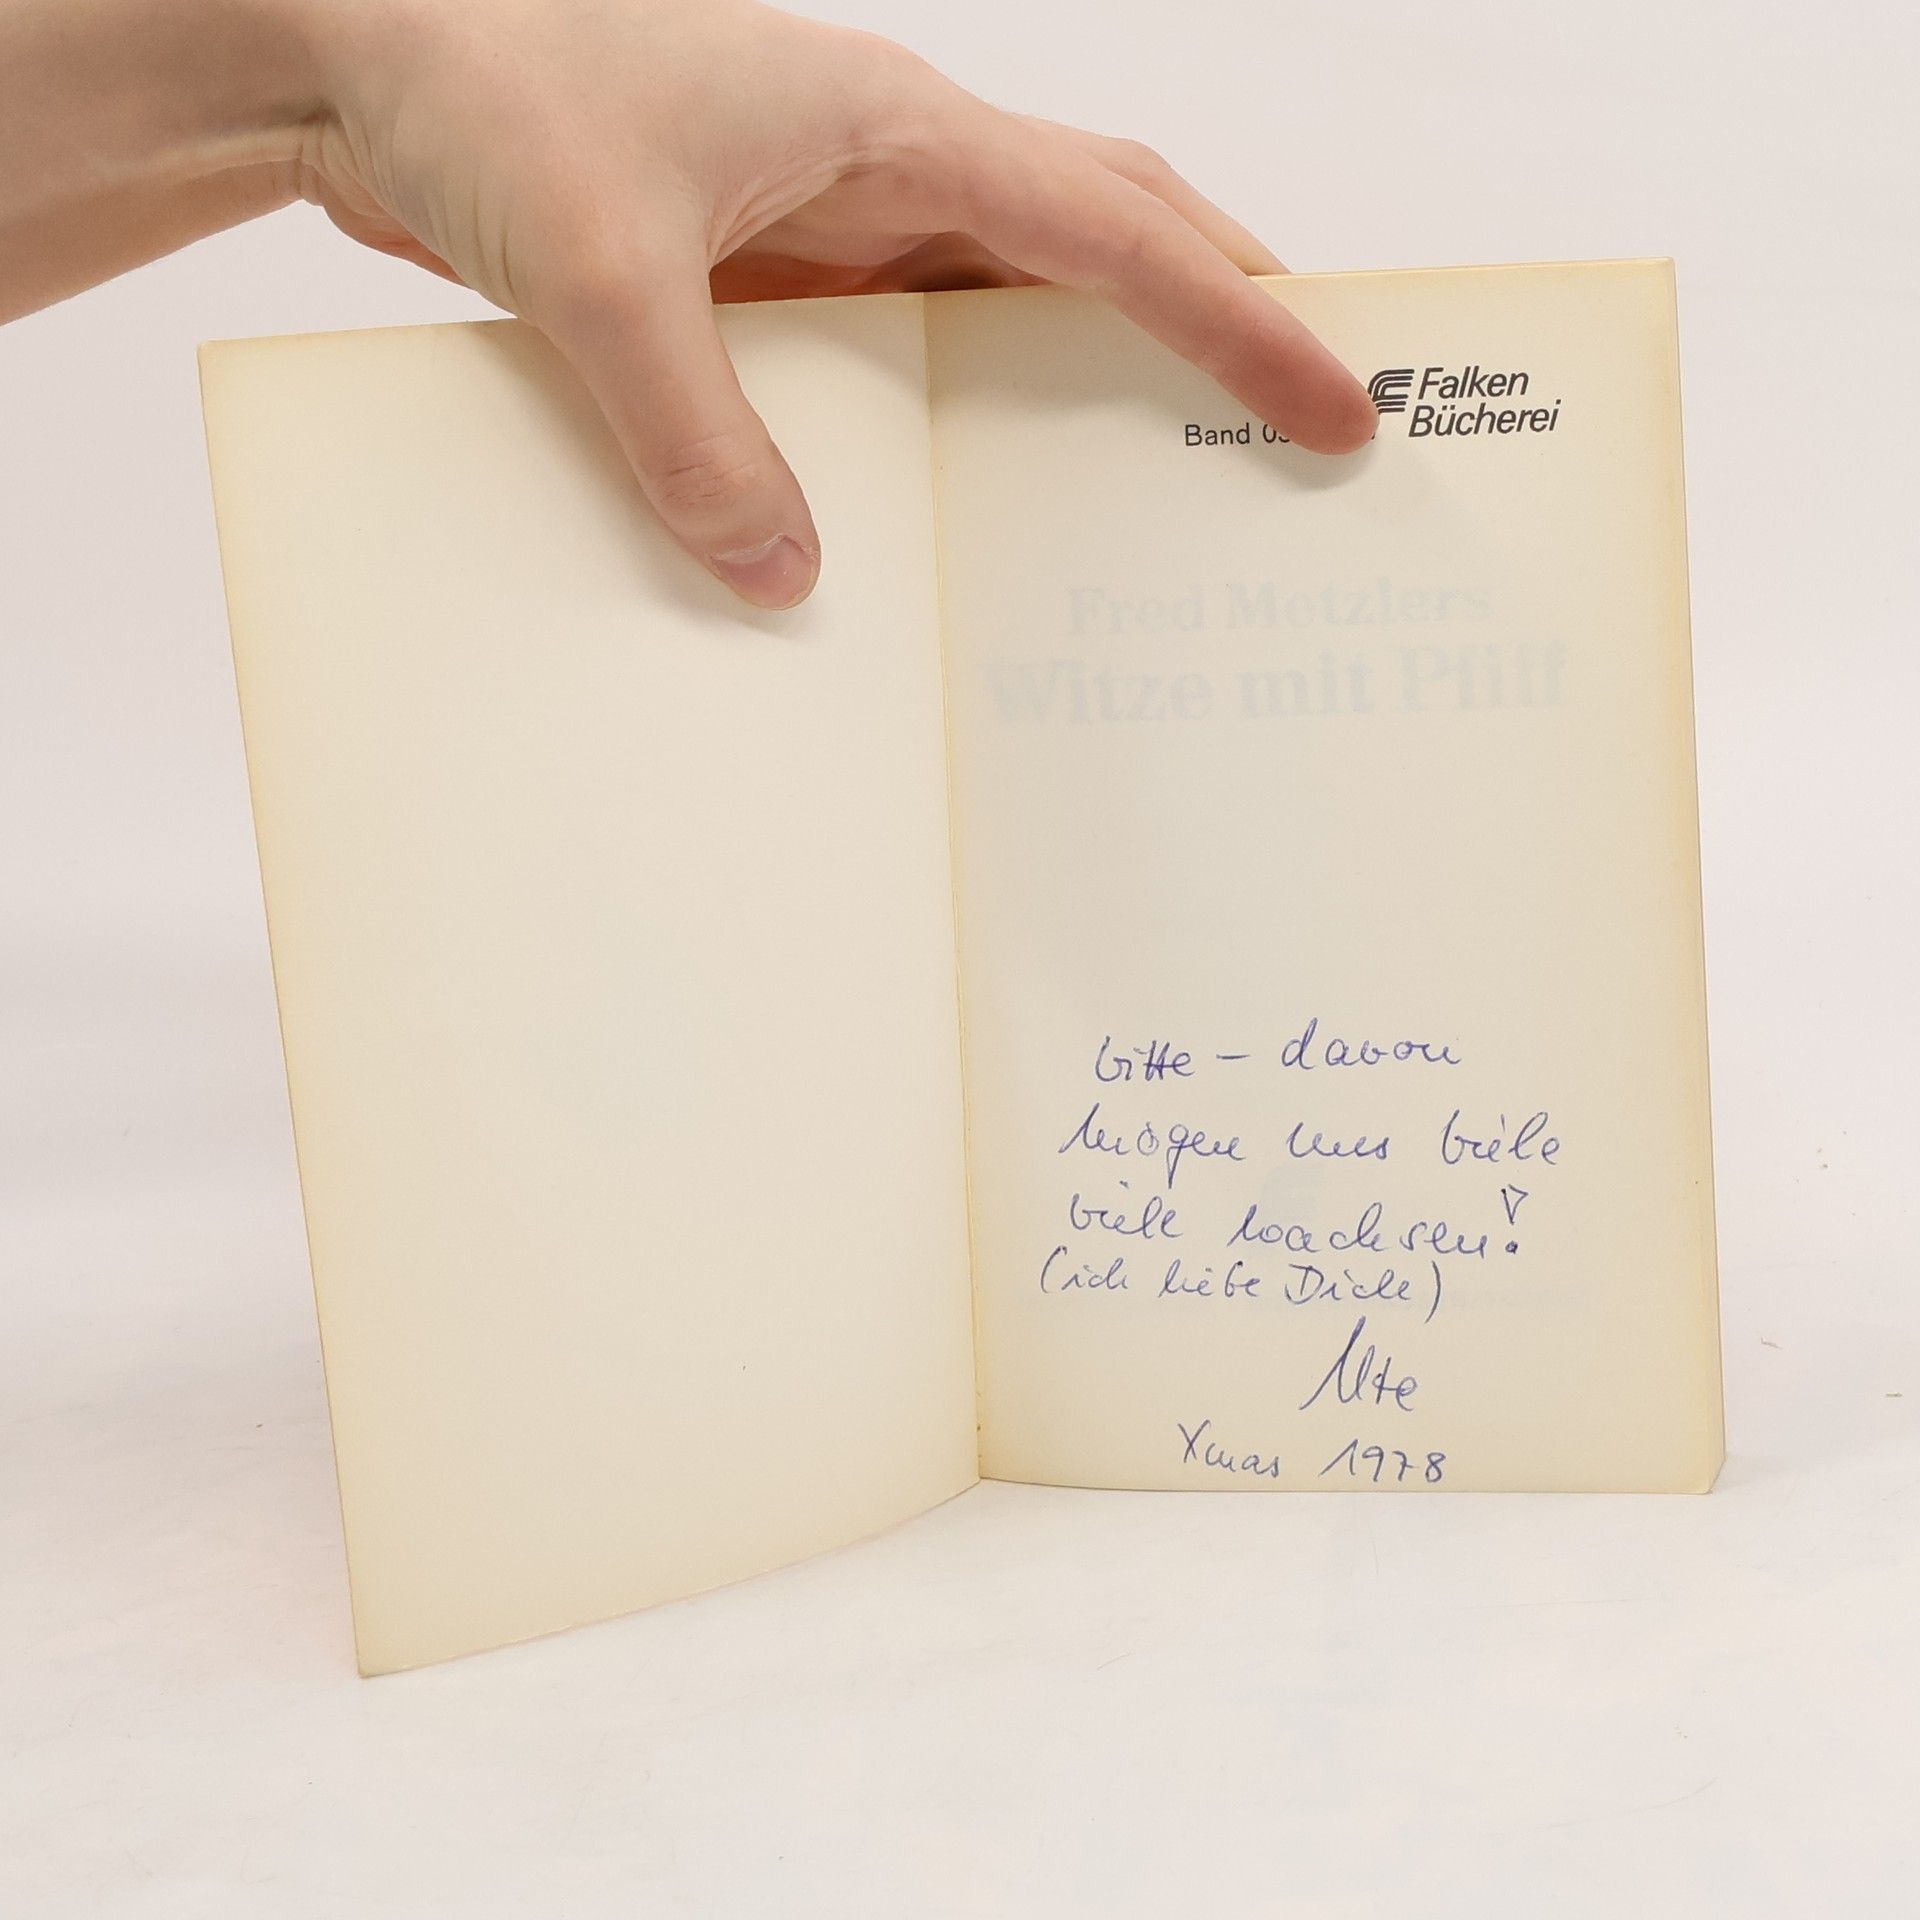 Falken
Bücherei
Band
Fred Metzlers
Witze mit Pfiff
bitte – davon
mögen uns viele
viele wachsen!
(ich liebe Dich)
Ute
Xmas 1978